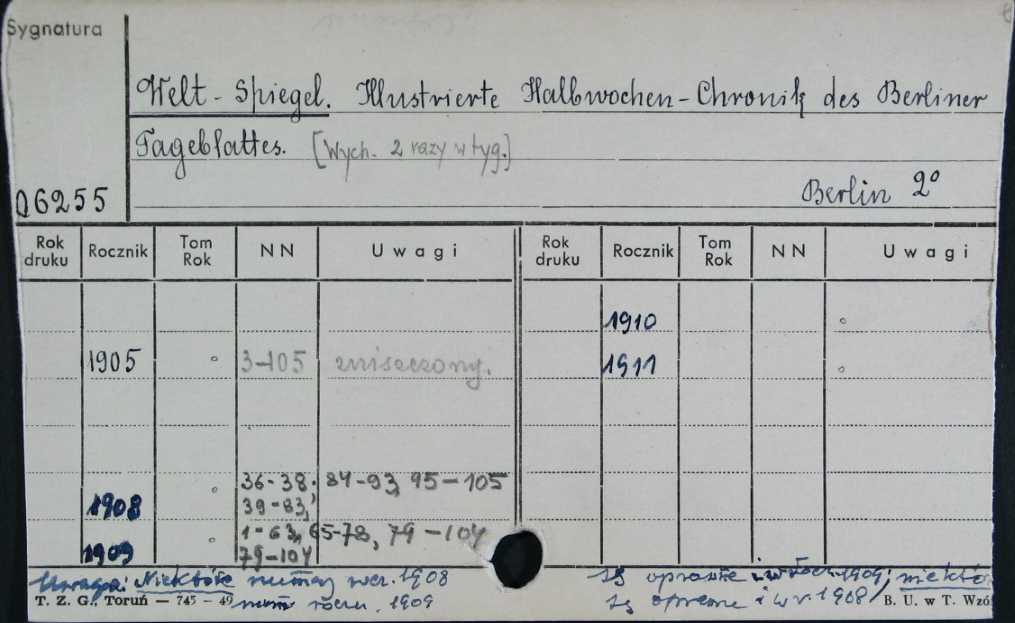 Sygnatura
Welt-Spiegel. Illustrierte Halbwochen-Chronik des Berliner
Tageblattes. [Wych. 2 razy w tyg.]
06255 Berlin 2°
Rok druku Rocznik Tom Rok NN Uwagi Rok druku Rocznik Tom Rok NN Uwagi
1910
1905 3-105 zniszczony. 1911
36-38. 84-93, 95-105
1908 39-83,
1-63, 65-78, 79-104
1909 79-104
Uwaga: Niektóre numery 1908 są oprawne i w 1909; niektó
T. Z. G., Toruń — 745 — 49 num 1909 są oprawne i w r. 1908 B. U. w T. Wzó